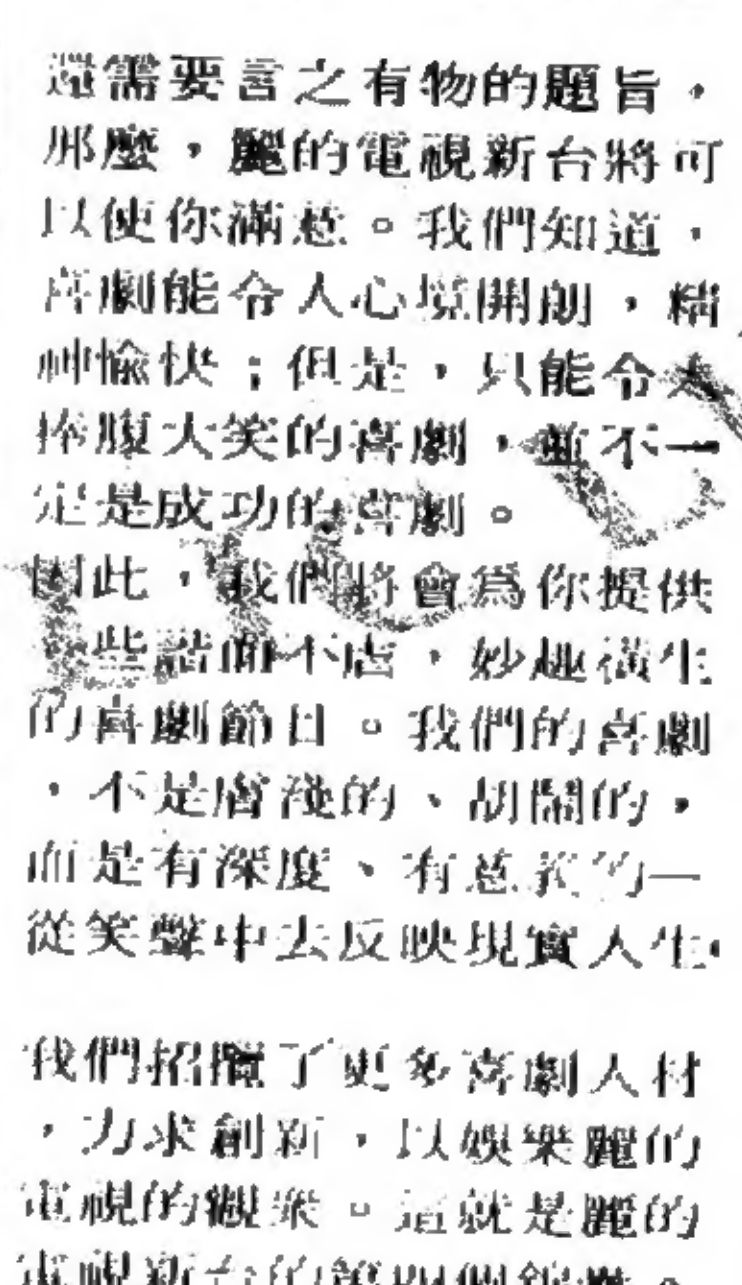 還需要言之有物的題旨，
那麼，麗的電視新台將可
以使你滿意。我們知道，
喜劇能令人心境開朗，精
神愉快；但是，只能令人
捧腹大笑的喜劇，並不一
定是成功的喜劇。
因此，我們將會為你提供
一些諧而不虐，妙趣橫生
的喜劇節目。我們的喜劇
，不是膚淺的、胡鬧的，
而是有深度、有意義的—
從笑聲中去反映現實人生。
我們招攬了更多喜劇人材
，力求創新，以娛樂麗的
電視的觀衆。這就是麗的
電視新台的第四個